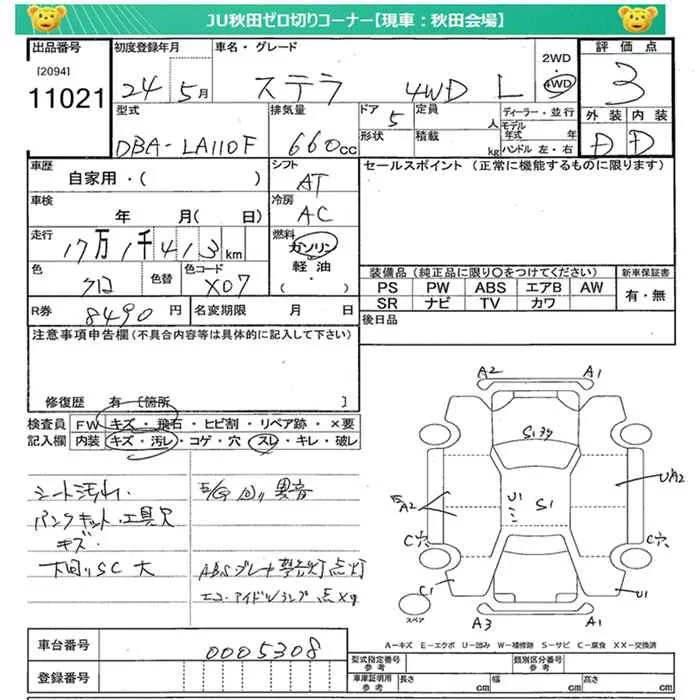 JU秋田ゼロ切りコーナー【現車：秋田会場】
出品番号
[2094]
11021
初度登録年月
24 5月
車名・グレード
ステラ 4WD L
2WD
・
4WD
評価点
3
外装 内装
D D
型式
DBA-LA110F
排気量
660cc
ドア
5
形状
定員
人
積載
kg
ディーラー・並行
モデル年式 年
ハンドル 左・右
車歴
自家用・( )
シフト
AT
車検
年 月( 日)
冷房
AC
走行
17万1千413km
燃料
ガソリン
軽油
( ・ )
色
クロ
色替
色コード
X07
R券
8490円
名変期限 月 日
セールスポイント（正常に機能するものに限ります）
装備品（純正品に限り○をつけてください）
新車保証書
PS PW ABS エアB AW
SR ナビ TV カワ
有・無
後日品
注意事項申告欄（不具合内容等は具体的に記入して下さい）
修復歴 有〔箇所 〕
検査員記入欄
FW キズ・飛石・ヒビ割・リペア跡・×要
内装 キズ・汚レ・コゲ・穴・スレ・キレ・破レ
シート汚れ
パンクキット・工具欠
キズ
下回りSC大
異音
ABS ブレーキ警告灯点灯
エコ・アイドルランプ点
A2 A1
S1
U1 S1
A2
UA2
C穴 C穴
C1 U1
A3 A1
スペア
A－キズ E－エクボ U－凹み W－補修跡 S－サビ C－腐食 XX－交換済
車台番号
0005308
登録番号
型式指定番号
参考
類別区分番号
参考
車庫証明用
参考
長さ cm
幅 cm
高さ cm